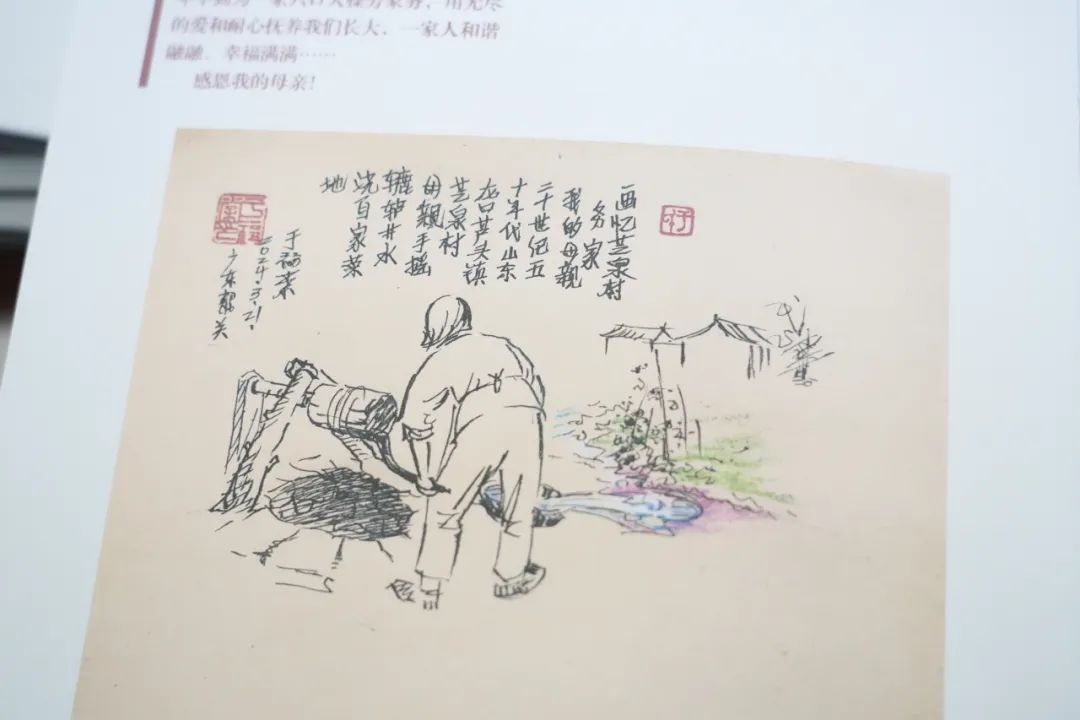 一家六口人操劳家务，用无尽
的爱和耐心抚养我们长大，一家人和谐
融融、幸福满满……
感恩我的母亲！
画忆芝泉村
务家
我的母親
二十世纪五
十年代山东
龙口芦头镇
芝泉村
母親手摇
辘轳井水
浇自家菜
地
于福
2024.3.21.
广东韶关